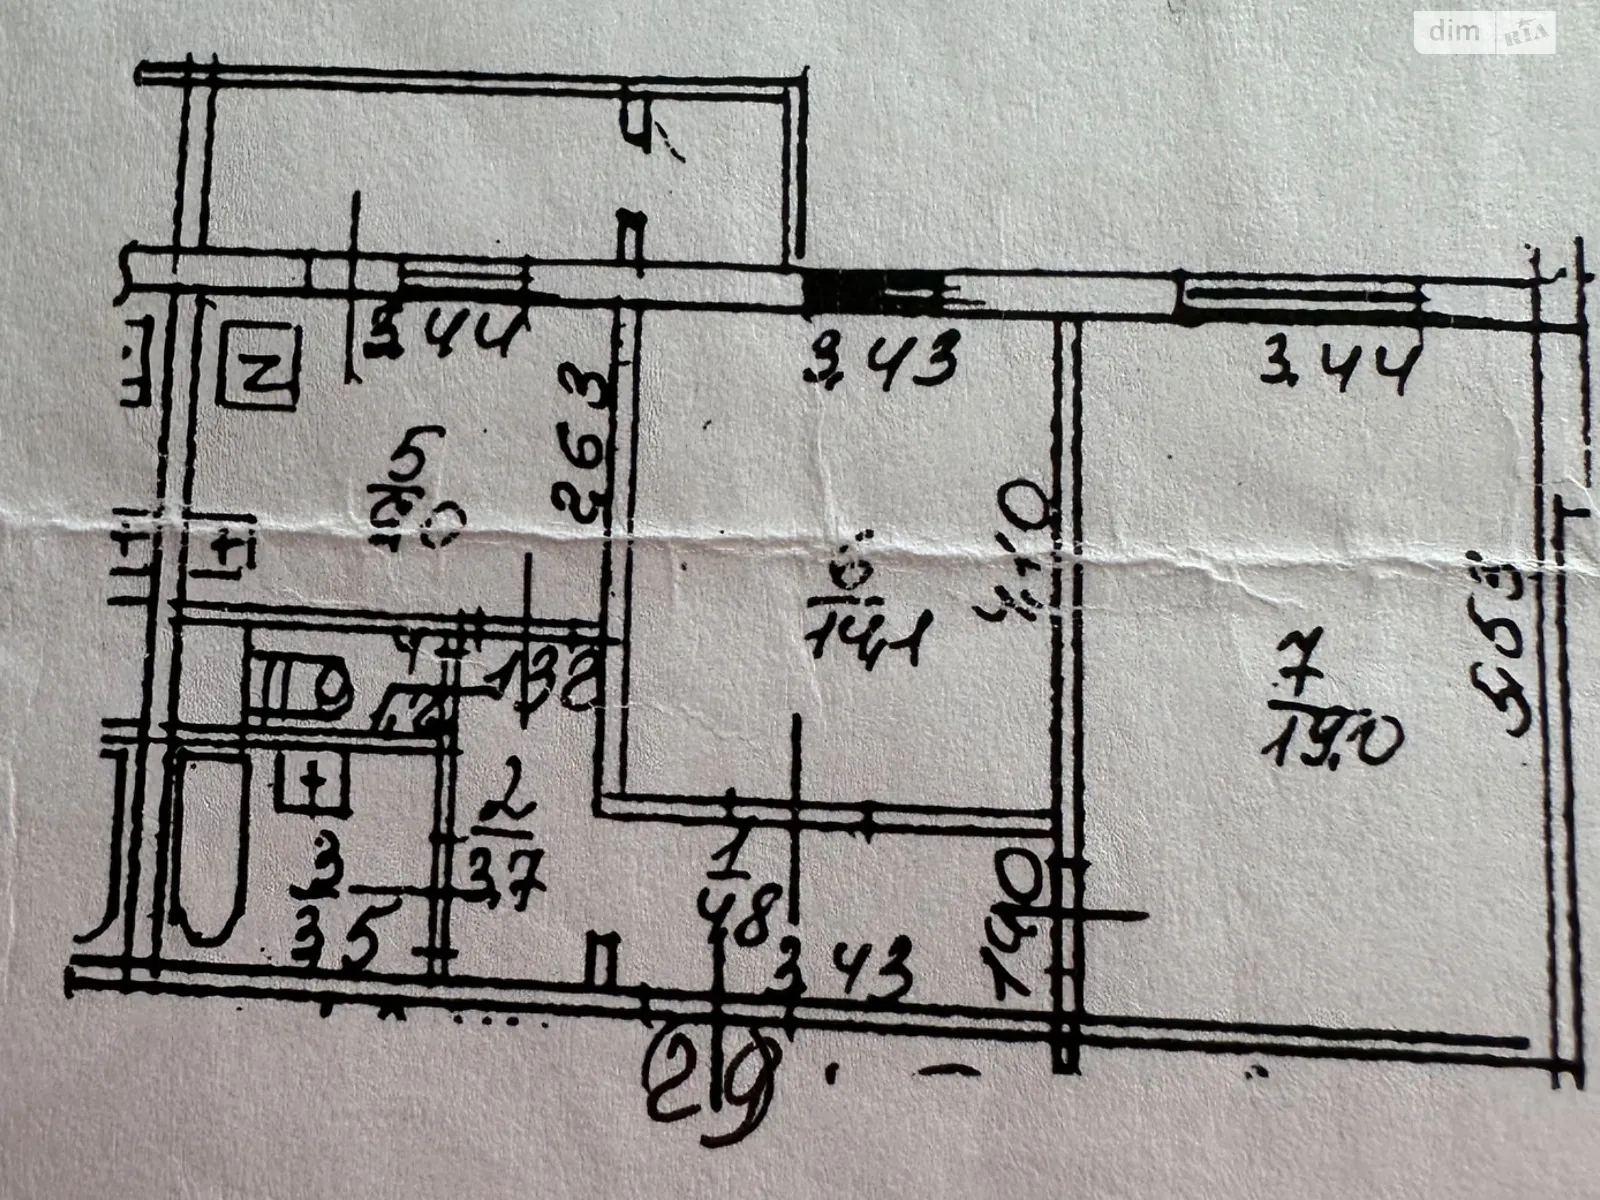 dim RIA
3.44
3.43
3.44
2,63
5
4,10
6
14,1
5,53
7
19,0
4
1,2
1,38
2
3,7
3
3,5
1
4,8
1,40
3,43
(29)